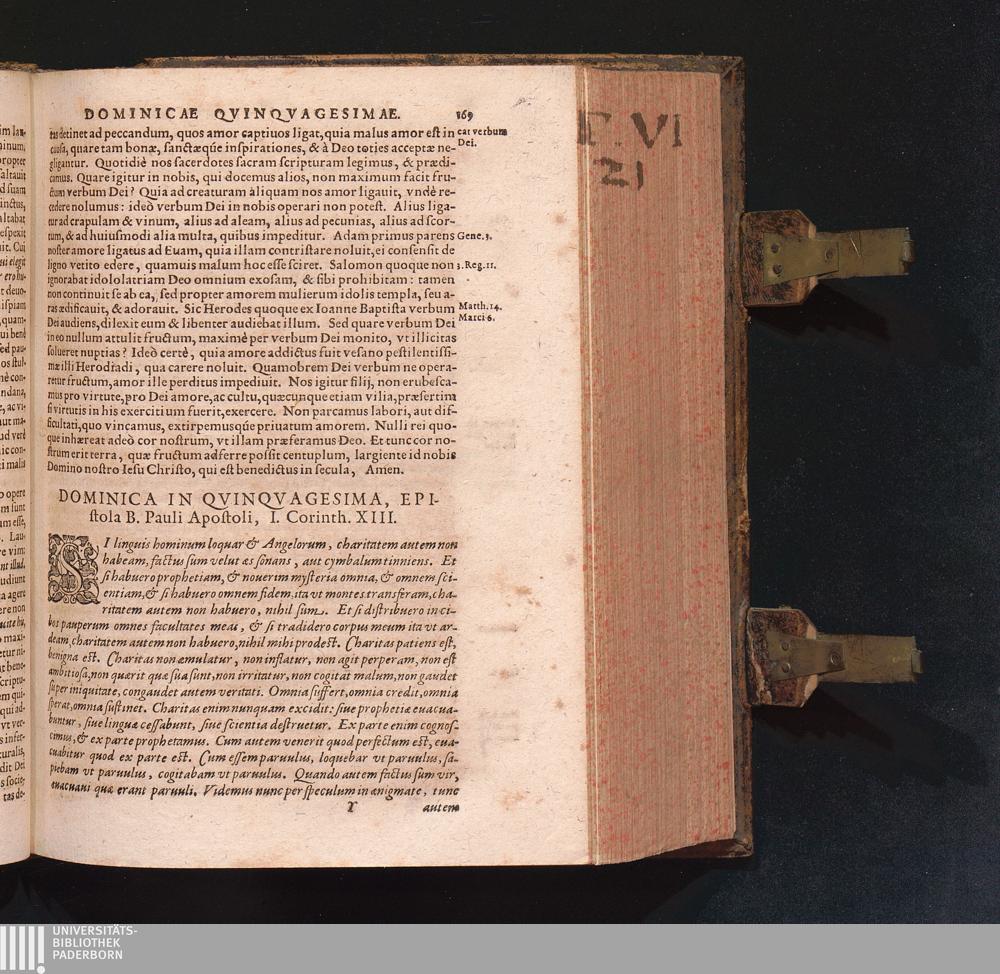 DOMINICAE QVINQVAGESIMAE. 169
tas detinet ad peccandum, quos amor captiuos ligat, quia malus amor est in
causa, quare tam bonæ, sanctæqúe inspirationes, & à Deo toties acceptæ ne-
gligantur. Quotidiè nos sacerdotes sacram scripturam legimus, & prædi-
camus. Quare igitur in nobis, qui docemus alios, non maximum facit fru-
ctum verbum Dei? Quia ad creaturam àliquam nos amor ligauit, vndè re-
cedere nolumus: ideò verbum Dei in nobis operari non potest. Alius liga-
tur ad crapulam & vinum, alius ad aleam, alius ad pecunias, alius ad scor-
tum, & ad huiusmodi alia multa, quibus impeditur. Adam primus parens
noster amore ligatus ad Euam, quia illam contristare noluit, ei consensit de
ligno vetito edere, quamuis malum hoc esse sciret. Salomon quoque non
ignorabat idololatriam Deo omnium exosam, & sibi prohibitam: tamen
non continuit se ab ea, sed propter amorem mulierum idolis templa, seu a-
ras ædificauit, & adorauit. Sic Herodes quoque ex Ioanne Baptista verbum
Dei audiens, dilexit eum & libenter audiebat illum. Sed quare verbum Dei
in eo nullum attulit fructum, maximè per verbum Dei monito, vt illicitas
solueret nuptias? Ideò certè, quia amore addictus fuit vesano pestilentissi-
mæ illi Herodiadi, qua carere noluit. Quamobrem Dei verbum ne opera-
retur fructum, amor ille perditus impediuit. Nos igitur filij, non erubesca-
mus pro virtute, pro Dei amore, ac cultu, quæcunque etiam vilia, præsertim
si virtutis in his exercitium fuerit, exercere. Non parcamus labori, aut dif-
ficultati, quo vincamus, extirpemusqúe priuatum amorem. Nulli rei quo-
que inhæreat adeò cor nostrum, vt illam præferamus Deo. Et tunc cor no-
strum erit terra, quæ fructum adferre possit centuplum, largiente id nobis
Domino nostro Iesu Christo, qui est benedictus in secula, Amen.
cat verbum
Dei.
Gene.3.
3.Reg.11.
Matth.14.
Marci 6.
DOMINICA IN QVINQVAGESIMA, EPI-
stola B. Pauli Apostoli, I. Corinth. XIII.
SI linguis hominum loquar & Angelorum, charitatem autem non
habeam, factus sum velut æs sonans, aut cymbalum tinniens. Et
si habuero prophetiam, & nouerim mysteria omnia, & omnem sci-
entiam, & si habuero omnem fidem, ita vt montes transferam, cha-
ritatem autem non habuero, nihil sum. Et si distribuero in ci-
bos pauperum omnes facultates meas, & si tradidero corpus meum ita vt ar-
deam, charitatem autem non habuero, nihil mihi prodest. Charitas patiens est,
benigna est. Charitas non æmulatur, non inflatur, non agit perperam, non est
ambitiosa, non quærit quæ sua sunt, non irritatur, non cogitat malum, non gaudet
super iniquitate, congaudet autem veritati. Omnia suffert, omnia credit, omnia
sperat, omnia sustinet. Charitas enim nunquam excidit: siue prophetiæ euacua-
buntur, siue linguæ cessabunt, siue scientia destruetur. Ex parte enim cognos-
cimus, & ex parte prophetamus. Cum autem venerit quod perfectum est, eua-
cuabitur quod ex parte est. Cum essem paruulus, loquebar vt paruulus, sa-
piebam vt paruulus, cogitabam vt paruulus. Quando autem factus sum vir,
euacuaui quæ erant paruuli. Videmus nunc per speculum in ænigmate, tunc
Y autem
VI
21
UNIVERSITÄTS-
BIBLIOTHEK
PADERBORN